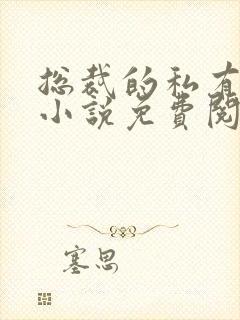 总裁的私有
小说免费阅
塞思